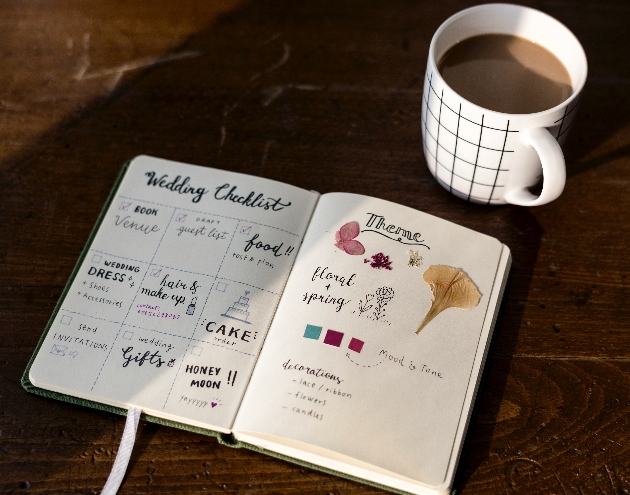 Wedding Checklist
BOOK
Venue
DRAFT
guest list
food!!
taste & plan
WEDDING
DRESS
+ Shoes
+ Accessories
hair &
make up
CAKE
order
send
INVITATIONS
wedding
Gifts
HONEY
MOON !!
Yayyyyy
Theme
floral
+
spring
Mood & Tone
decorations
- lace / ribbon
- flowers
- candles